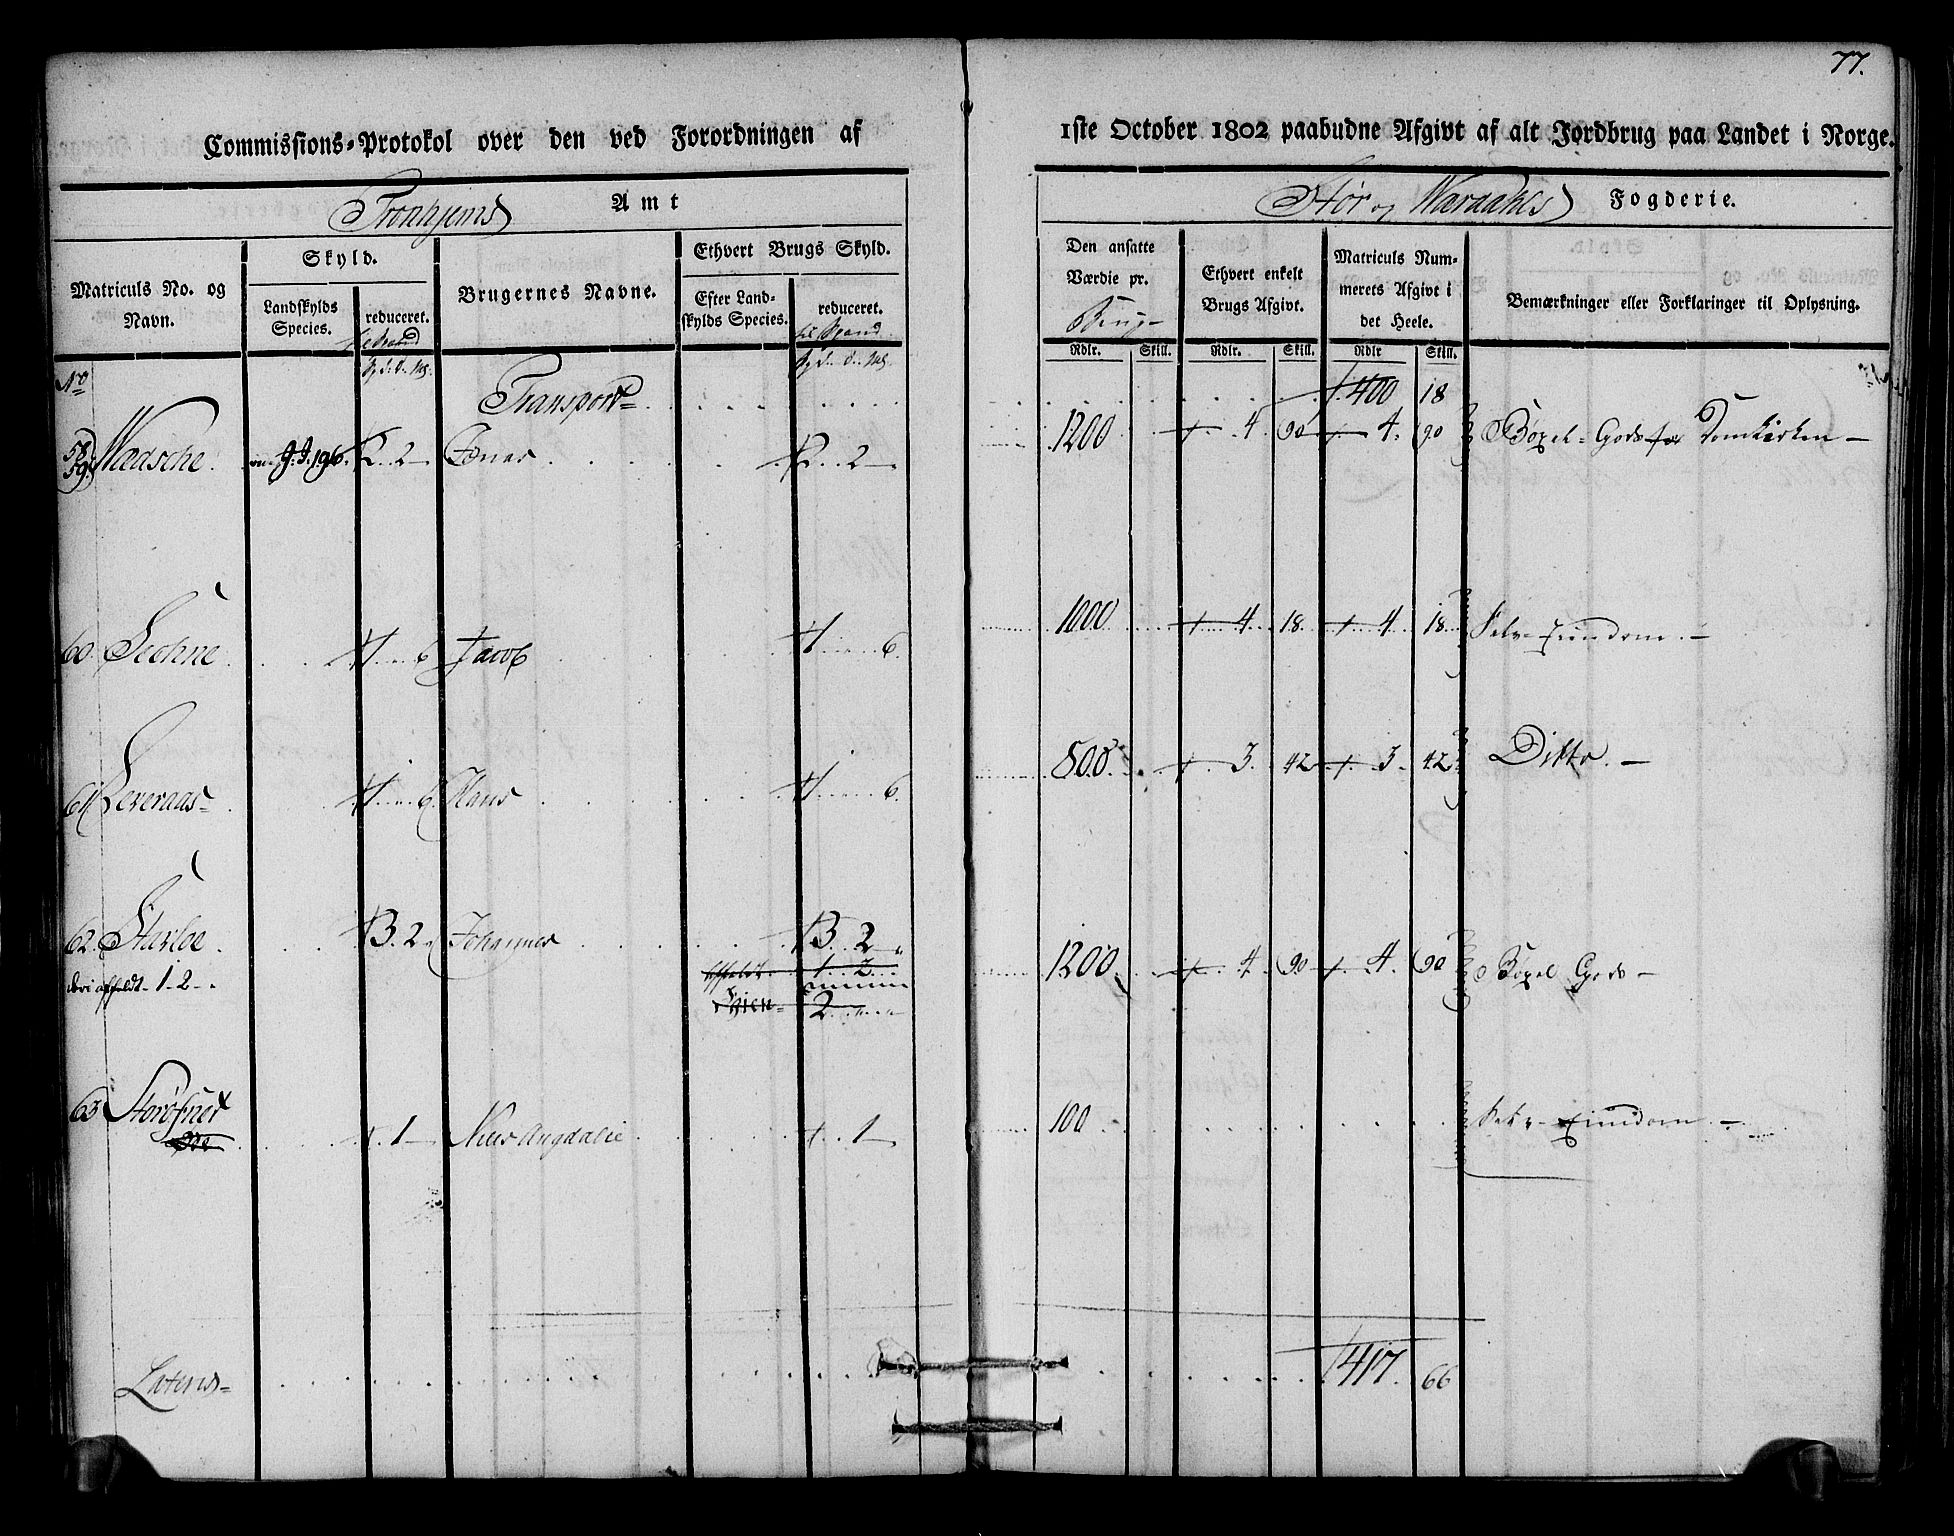 77.
Commissions-Protokol over den ved Forordningen af 1ste October 1802 paabudne Afgivt af alt Jordbrug paa Landet i Norge.
Tronhjems Amt
Stør og Wæradahls Fogderie.
Matriculs No. og Navn.
Skyld.
Landskylds Species.
reduceret.
Brugernes Navne.
Ethvert Brugs Skyld.
Efter Landskylds Species.
reduceret.
Den ansatte Værdie pr. Brug
Ethvert enkelt Brugs Afgivt.
Matriculs Nummerets Afgivt i det Heele.
Bemærkninger eller Forklaringer til Oplysning.
Rdlr. Skill. Rdlr. Skill. Rdlr Skill.
No Transport 400 18
58 59 2 2 1200 4 90 4 90 Bøxel-Gods Domkirken
60 6 Jacob 6 1000 4 18 4 18 Selv-Eiendom
61 Leveraas 6 Hans 6 800 3 42 3 42 Ditto
62 3 2 Johannes 3 2 1200 4 90 4 90 Bøxel Gods
1 2
1 2
2
63 1 1 100 Selv-Eiendom
Lateris 417 66